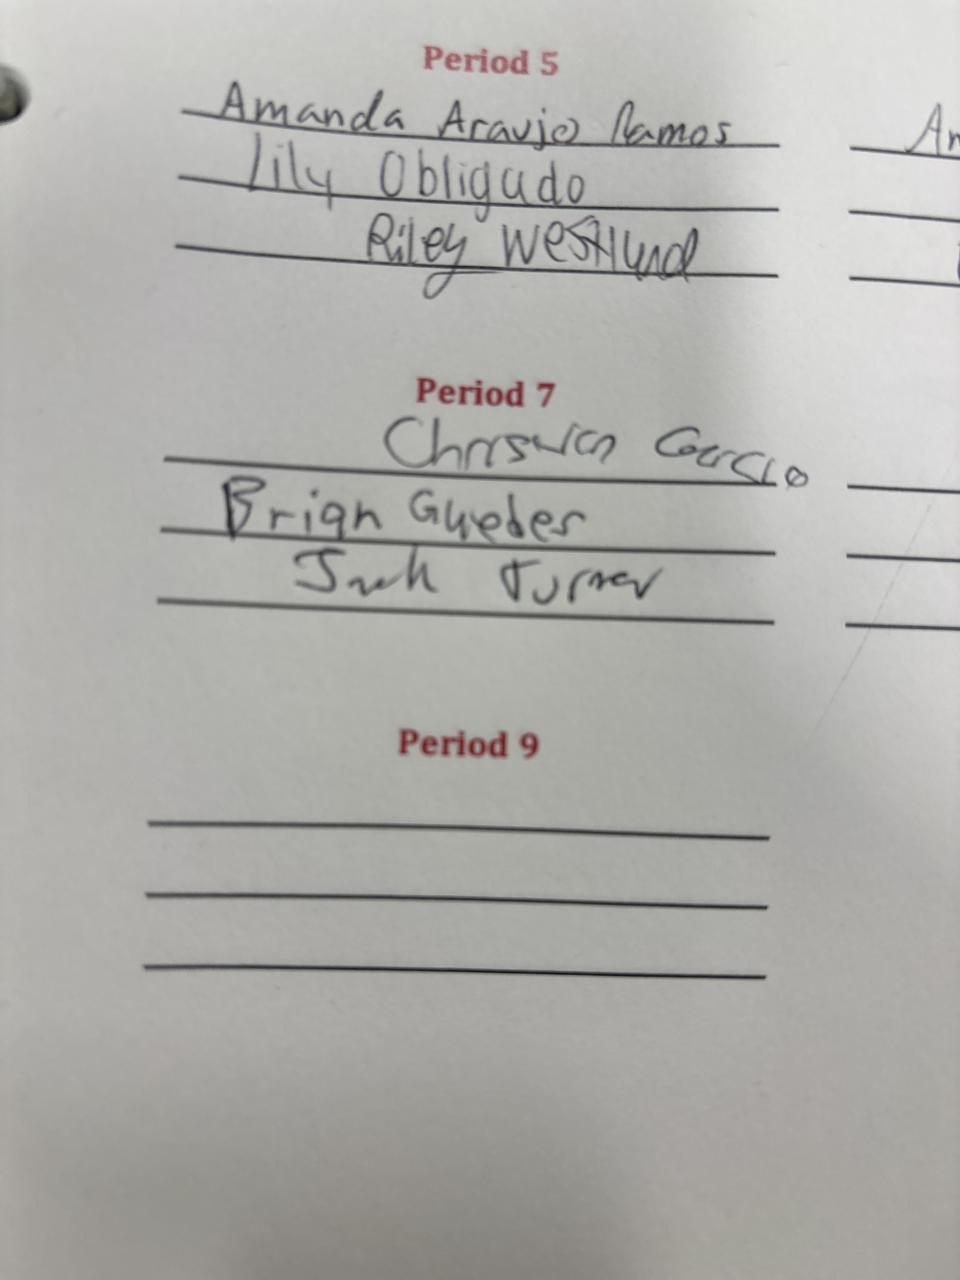 Period 5
Amanda Araujo Ramos
Lily Obligado
Riley Westlund
An
Period 7
Garcia
Brian Guedes
Jack Turner
Period 9